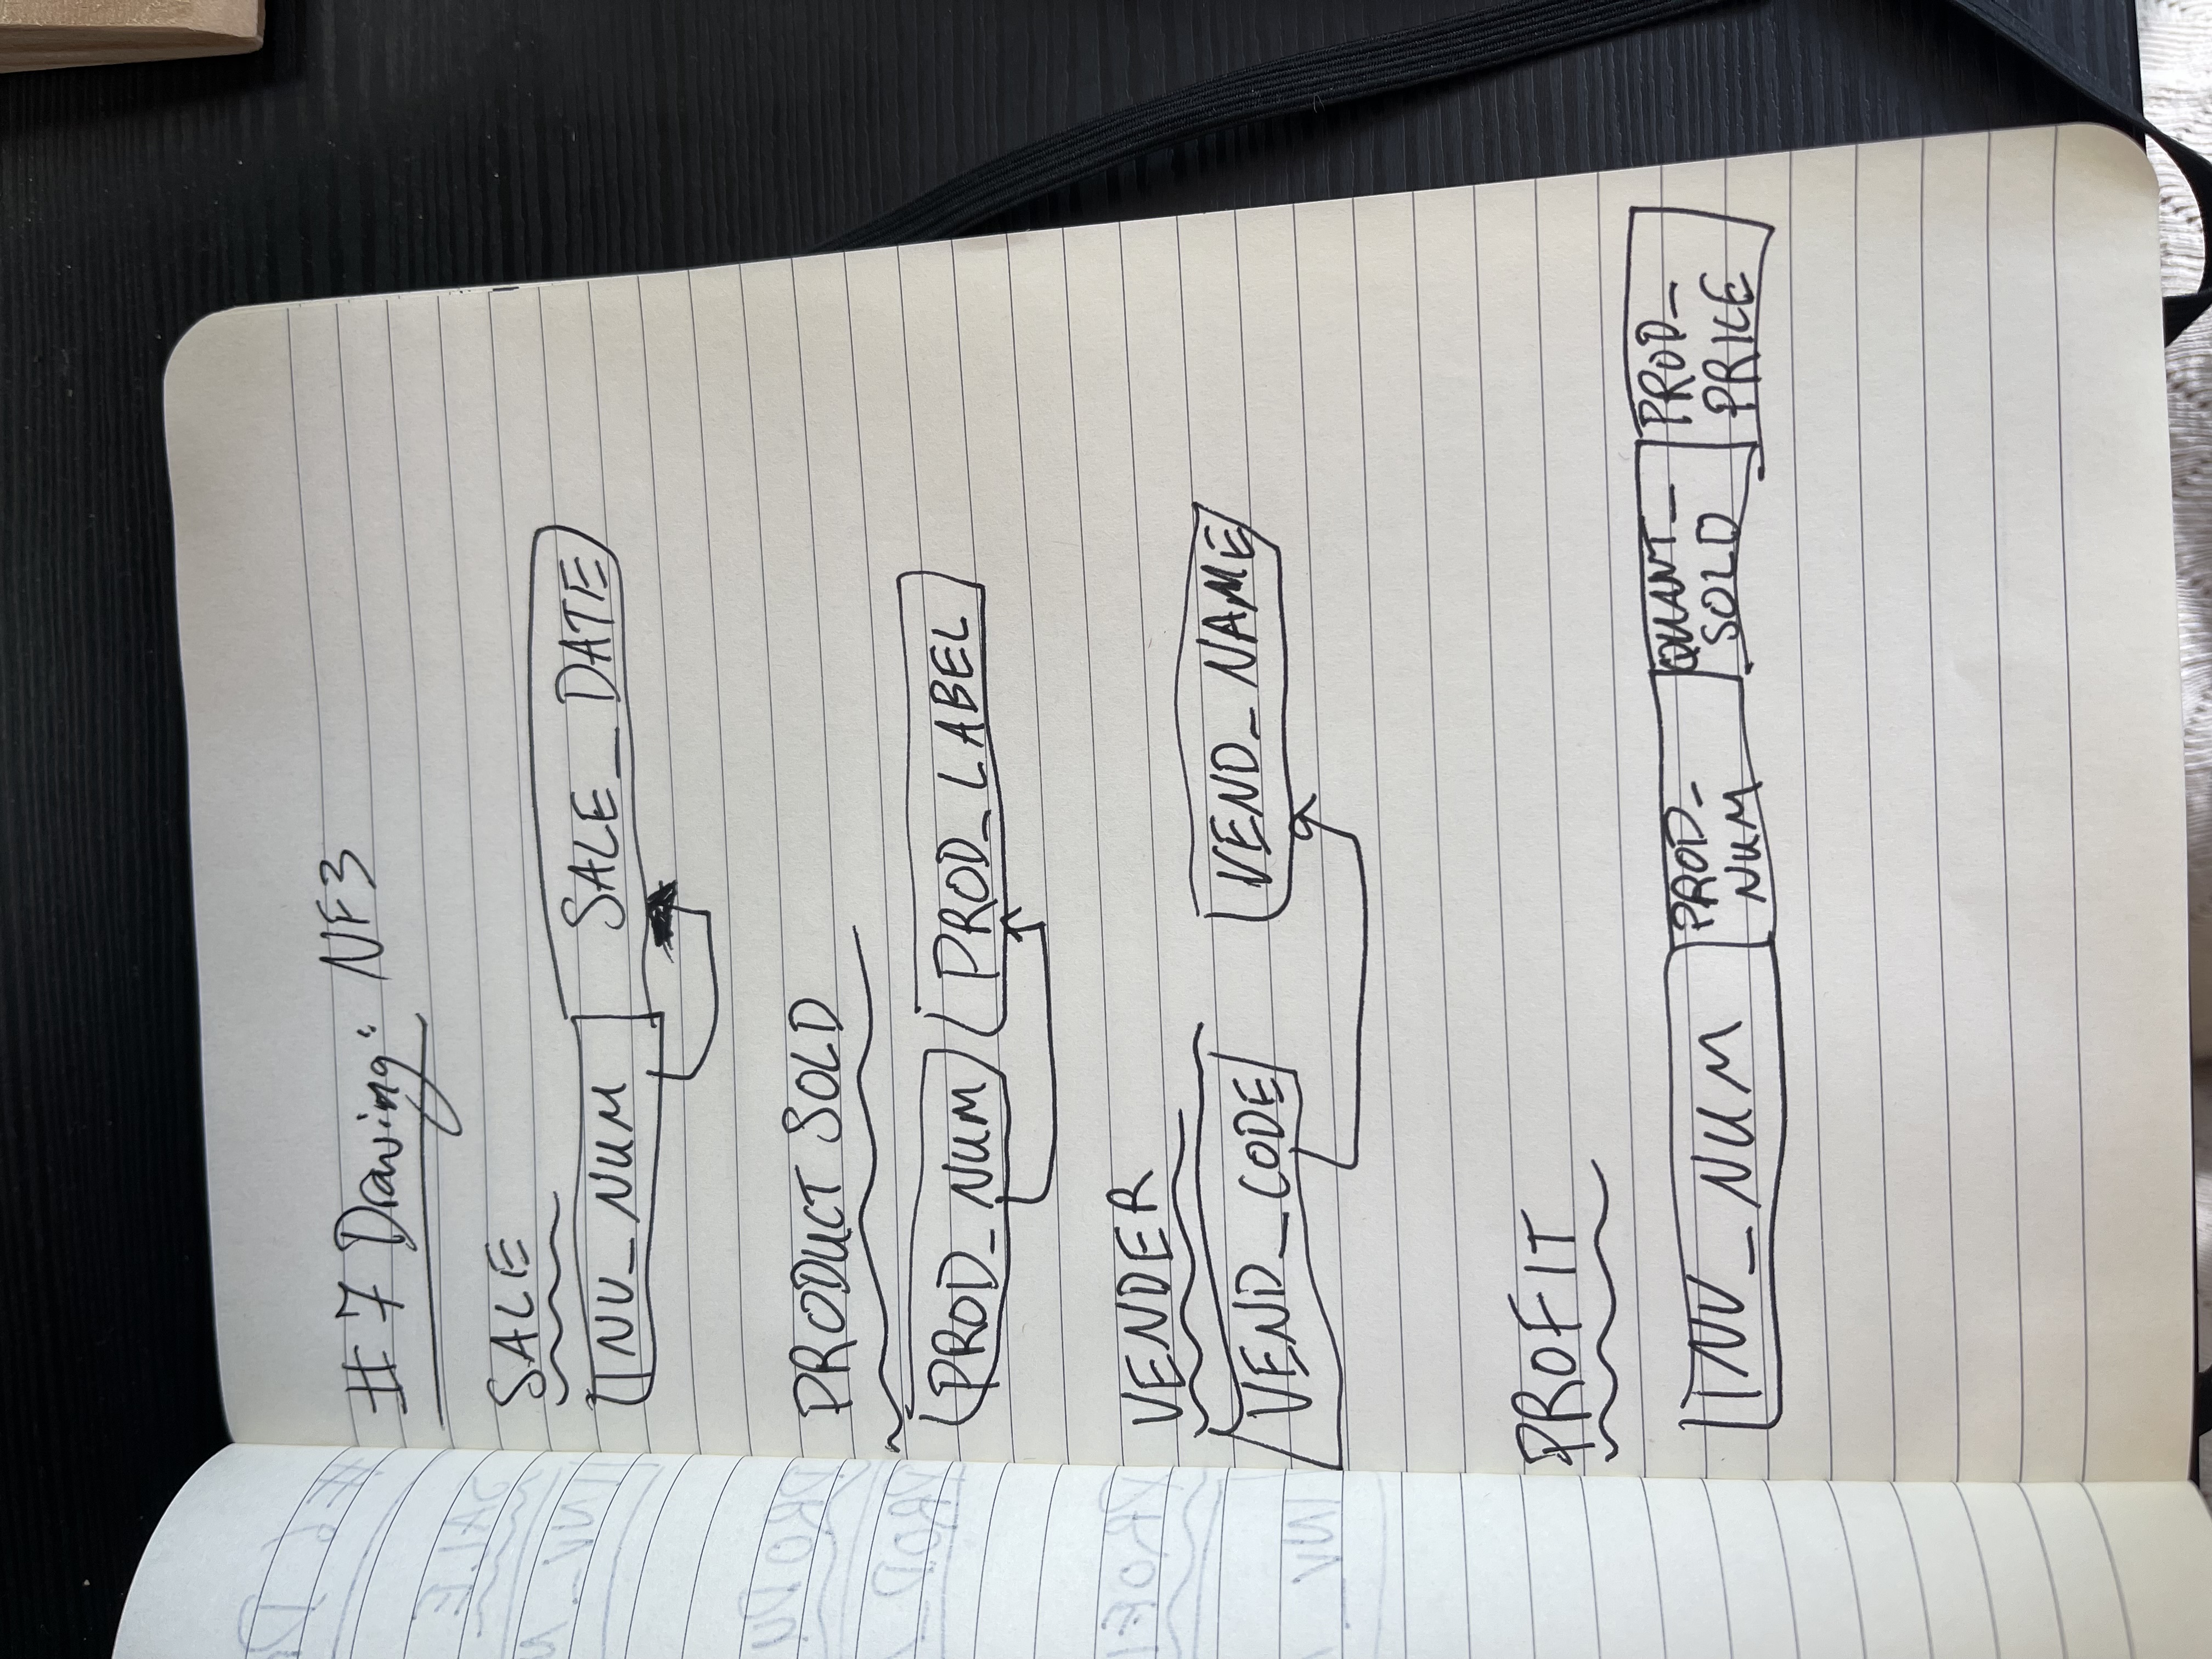 #7 Drawing: NF3
SALE
INV_NUM SALE_DATE
PRODUCT SOLD
PROD_NUM PROD_LABEL
VENDER
VEND_CODE VEND_NAME
PROFIT
INV_NUM PROD_ QUANT_ PROD_
NUM SOLD PRICE